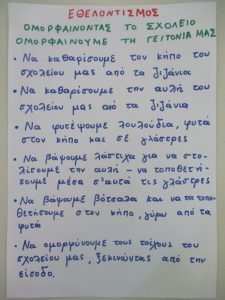 ΕΘΕΛΟΝΤΙΣΜΟΣ
ΟΜΟΡΦΑΙΝΟΝΤΑΣ ΤΟ ΣΧΟΛΕΙΟ
ΟΜΟΡΦΑΙΝΟΥΜΕ ΤΗ ΓΕΙΤΟΝΙΑ ΜΑΣ
• Να καθαρίσουμε τον κήπο του
σχολείου μας από τα ζιζάνια
• Να καθαρίσουμε την αυλή του
σχολείου μας από τα ζιζάνια
• Να φυτέψουμε λουλούδια, φυτά
στον κήπο και σε γλάστρες
• Να βάψουμε λάστιχα για να στο-
λίσουμε την αυλή - να τοποθετή-
σουμε μέσα σ'αυτά τις γλάστρες
• Να βάψουμε βότσαλα και να τα τοπο-
θετήσουμε στον κήπο, γύρω από τα
φυτά
• Να ομορφύνουμε τους τοίχους του
σχολείου μας, ξεκινώντας από την
είσοδο.